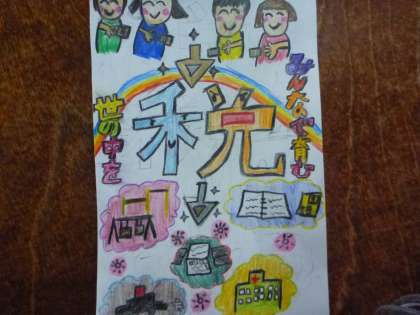 みんなで育む
税
世の中を